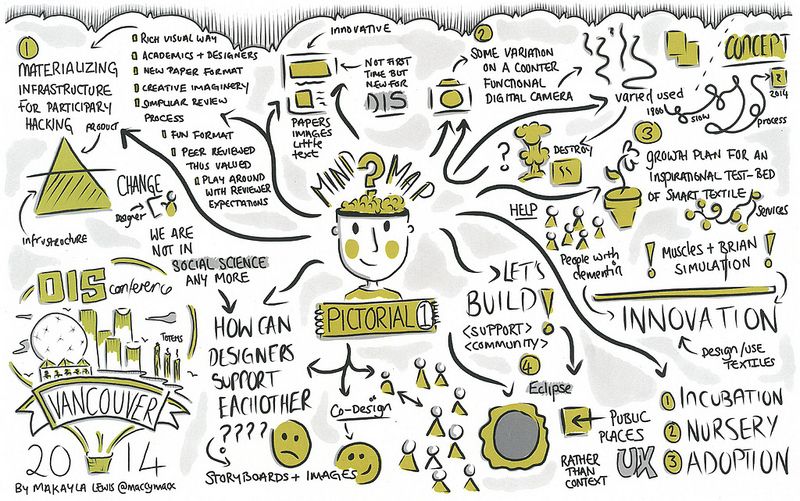 1
MATERIALIZING
INFRASTRUCTURE
FOR PARTICIPARY
HACKING
PRODUCT
infrastructure
CHANGE
Designer
WE ARE
NOT IN
SOCIAL SCIENCE
ANY MORE
RICH VISUAL WAY
ACADEMICS + DESIGNERS
NEW PAPER FORMAT
CREATIVE IMAGINERY
SIMPULAR REVIEW
PROCESS
FUN FORMAT
PEER REVIEWED
THUS VALUED
PLAY AROUND
WITH REVIEWER
EXPECTATIONS
INNOVATIVE
PAPERS
IMAGES
Little
text
NOT FIRST
TIME BUT
NEW FOR
DIS
2
SOME VARIATION
ON A COUNTER
FUNCTIONAL
DIGITAL CAMERA
?
DESTROY
varied used
1800
slow
process
CONCEPT
2
2014
3
GROWTH PLAN FOR AN
INSPIRATIONAL TEST-BED
OF SMART TEXTILE
services
HELP
People with
dementia
! MUSCLES + BRIAN !
SIMULATION
INNOVATION
DESIGN/USE
TEXTILES
1 INCUBATION
2 NURSERY
3 ADOPTION
MIND ? MAP
PICTORIAL 1
LET'S
BUILD!
<SUPPORT>
<COMMUNITY>
4
Eclipse
PUBLIC
PLACES
RATHER
THAN
CONTEXT
UX
HOW CAN
DESIGNERS
SUPPORT
EACHOTHER
????
Co-Design
STORYBOARDS + IMAGES
DIS
conference
TOTEMS
VANCOUVER
2014
BY MAKAYLA LEWIS @maccymacx